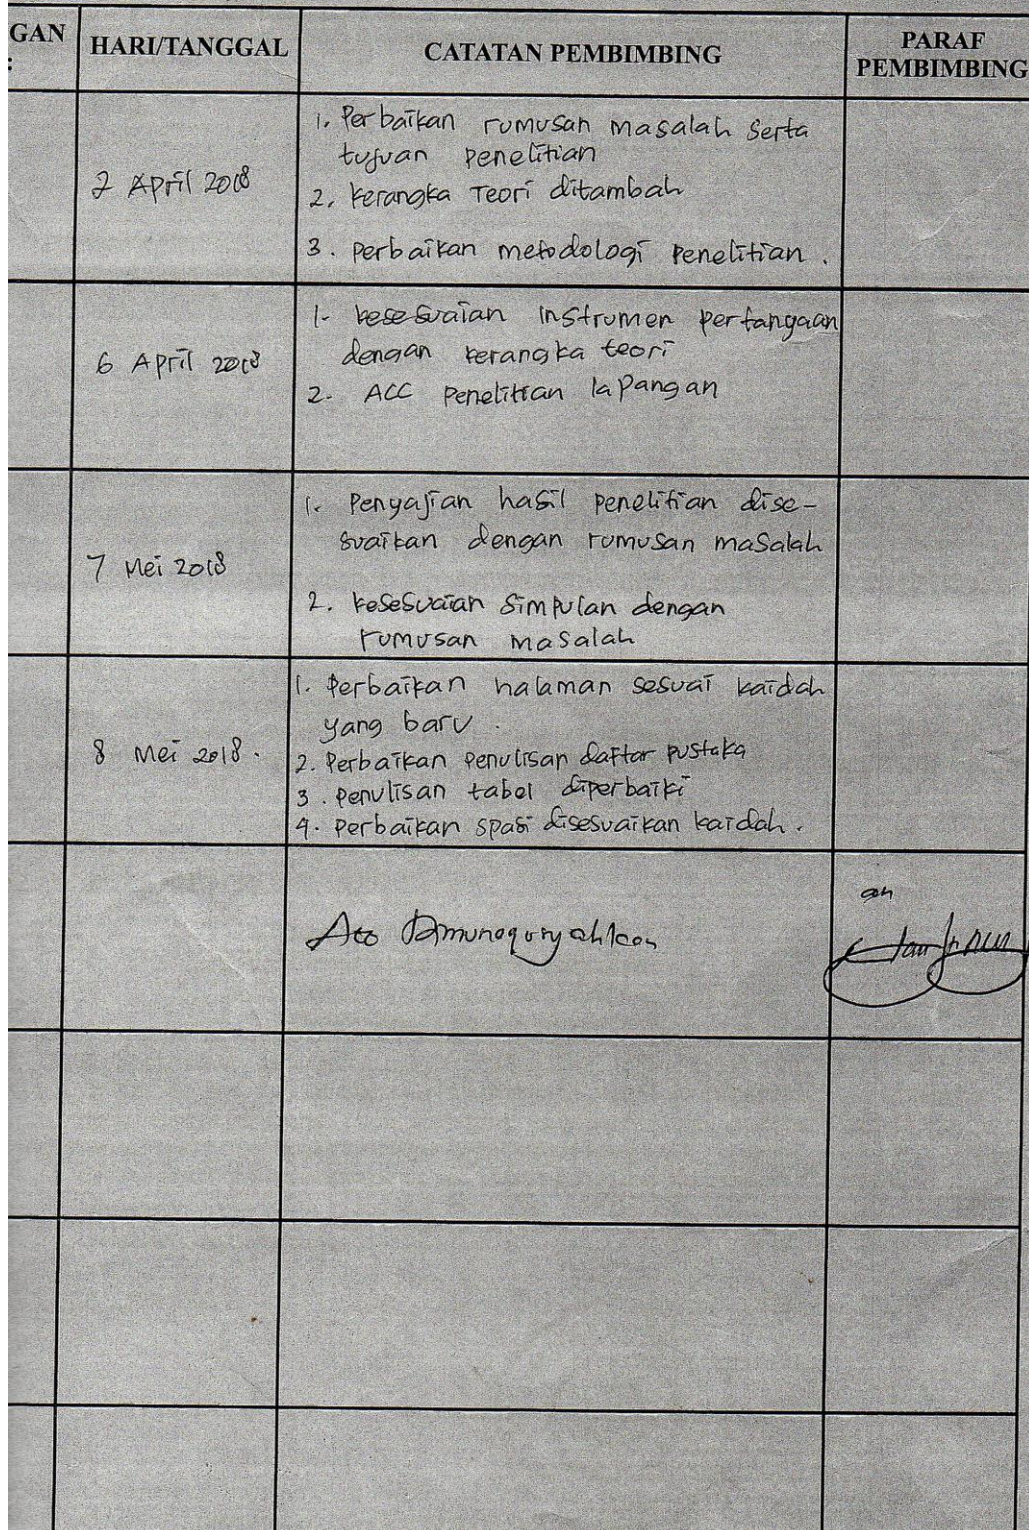 GAN
:
HARI/TANGGAL
CATATAN PEMBIMBING
PARAF
PEMBIMBING
2 April 2018
1. Perbaikan rumusan masalah serta
tujuan penelitian
2. kerangka Teori ditambah
3. perbaikan metodologi penelitian.
6 April 2018
1- kesesuaian instrumen pertangaan
dengan kerangka teori
2- ACC penelitian lapangan
7 Mei 2018
1. Penyajian hasil penelitian dise-
suaikan dengan rumusan masalah
2. kesesuaian simpulan dengan
rumusan masalah
8 Mei 2018.
1. Perbaikan halaman sesuai kaidah
yang baru.
2. Perbaikan penulisan daftar pustaka
3. penulisan tabel diperbaiki
4. perbaikan spasi disesuaikan kaidah.
an